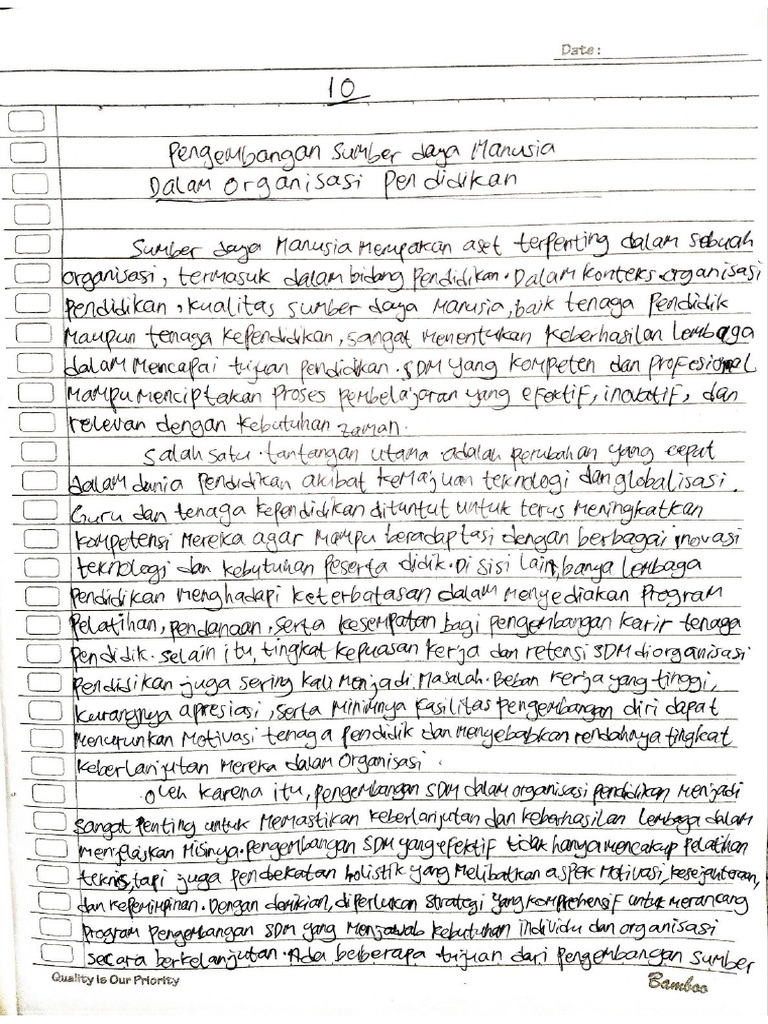 Date:
10
Pengembangan Sumber daya Manusia
Dalam Organisasi Pendidikan
Sumber daya Manusia Merupakan aset terpenting dalam sebuah
organisasi, termasuk dalam bidang Pendidikan. Dalam konteks organisasi
Pendidikan, kualitas sumber daya Manusia, baik tenaga Pendidik
Maupun tenaga Kependidikan, sangat Menentukan Keberhasilan Lembaga
dalam Mencapai tujuan pendidikan. SDM yang kompeten dan profesional
Mampu Menciptakan Proses pembelajaran yang efektif, inovatif, dan
relevan dengan Kebutuhan zaman.
Salah satu tantangan utama adalah perubahan yang cepat
dalam dunia Pendidikan akibat Kemajuan teknologi dan globalisasi.
Guru dan tenaga kependidikan dituntut untuk terus Meningkatkan
Kompetensi Mereka agar Mampu beradaptasi dengan berbagai inovasi
teknologi dan kebutuhan Peserta didik. Di sisi lain, banya lembaga
Pendidikan menghadapi keterbatasan dalam Menyediakan Program
Pelatihan, pendanaan, serta kesempatan bagi pengembangan karir tenaga
Pendidik. selain itu, tingkat kepuasan kerja dan retensi SDM diorganisasi
Pendidikan juga sering kali Menjadi Masalah. Beban kerja yang tinggi,
kurangnya apresiasi, serta Minimnya fasilitas pengembangan diri dapat
Menurunkan Motivasi tenaga pendidik dan Menyebabkan rendahnya tingkat
Keberlanjutan Mereka dalam Organisasi.
Oleh karena itu, pengembangan SDM dalam organisasi pendidikan Menjadi
Sangat Penting untuk Memastikan Keberlanjutan dan keberhasilan lembaga dalam
Menjalaskan Misinya. pengembangan SDM yang efektif tidak hanya mencakup Pelatihan
teknis, tapi juga pendekatan holistik yang Melibatkan aspek Motivasi, kesejahteraan,
dan kepemimpinan. Dengan demikian, diperlukan Strategi yang komprehensif untuk merancang
Program Pengembangan SDM yang Menjawab kebutuhan individu dan organisasi
secara berkelanjutan. Ada beberapa tujuan dari pengembangan sumber
Quality Is Our Priority
Bamboo